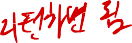 리턴하면 됨